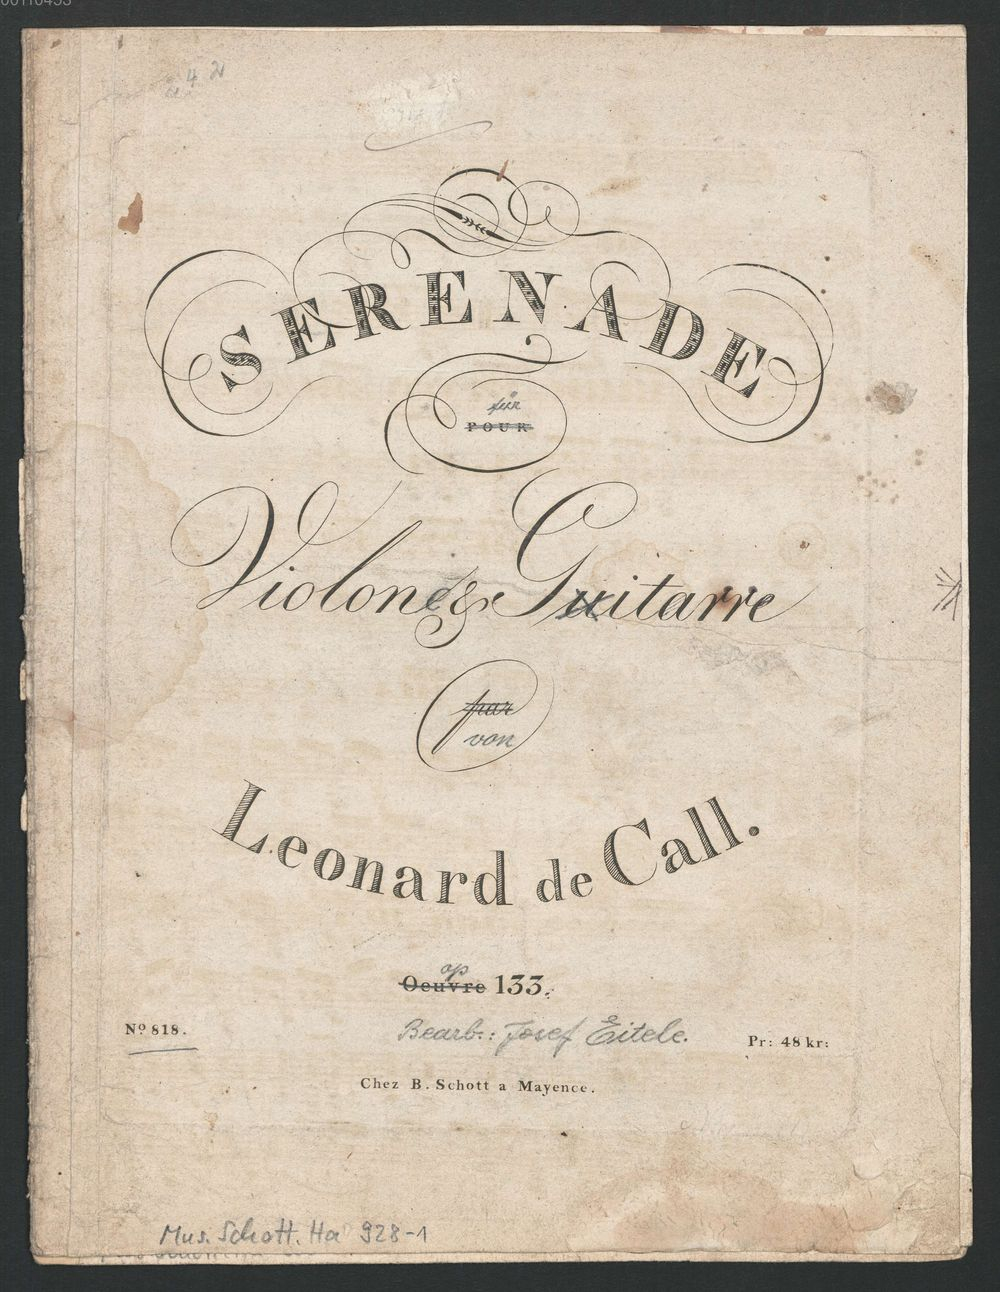 00110453
a 4 21
SERENADE
für
POUR
Violone & Guitarre
par
von
Leonard de Call.
op
Oeuvre 133.
Nº 818.
Bearb.: Josef Eitele.
Pr: 48 kr:
Chez B. Schott a Mayence.
Mus. Schott. Ha 928-1